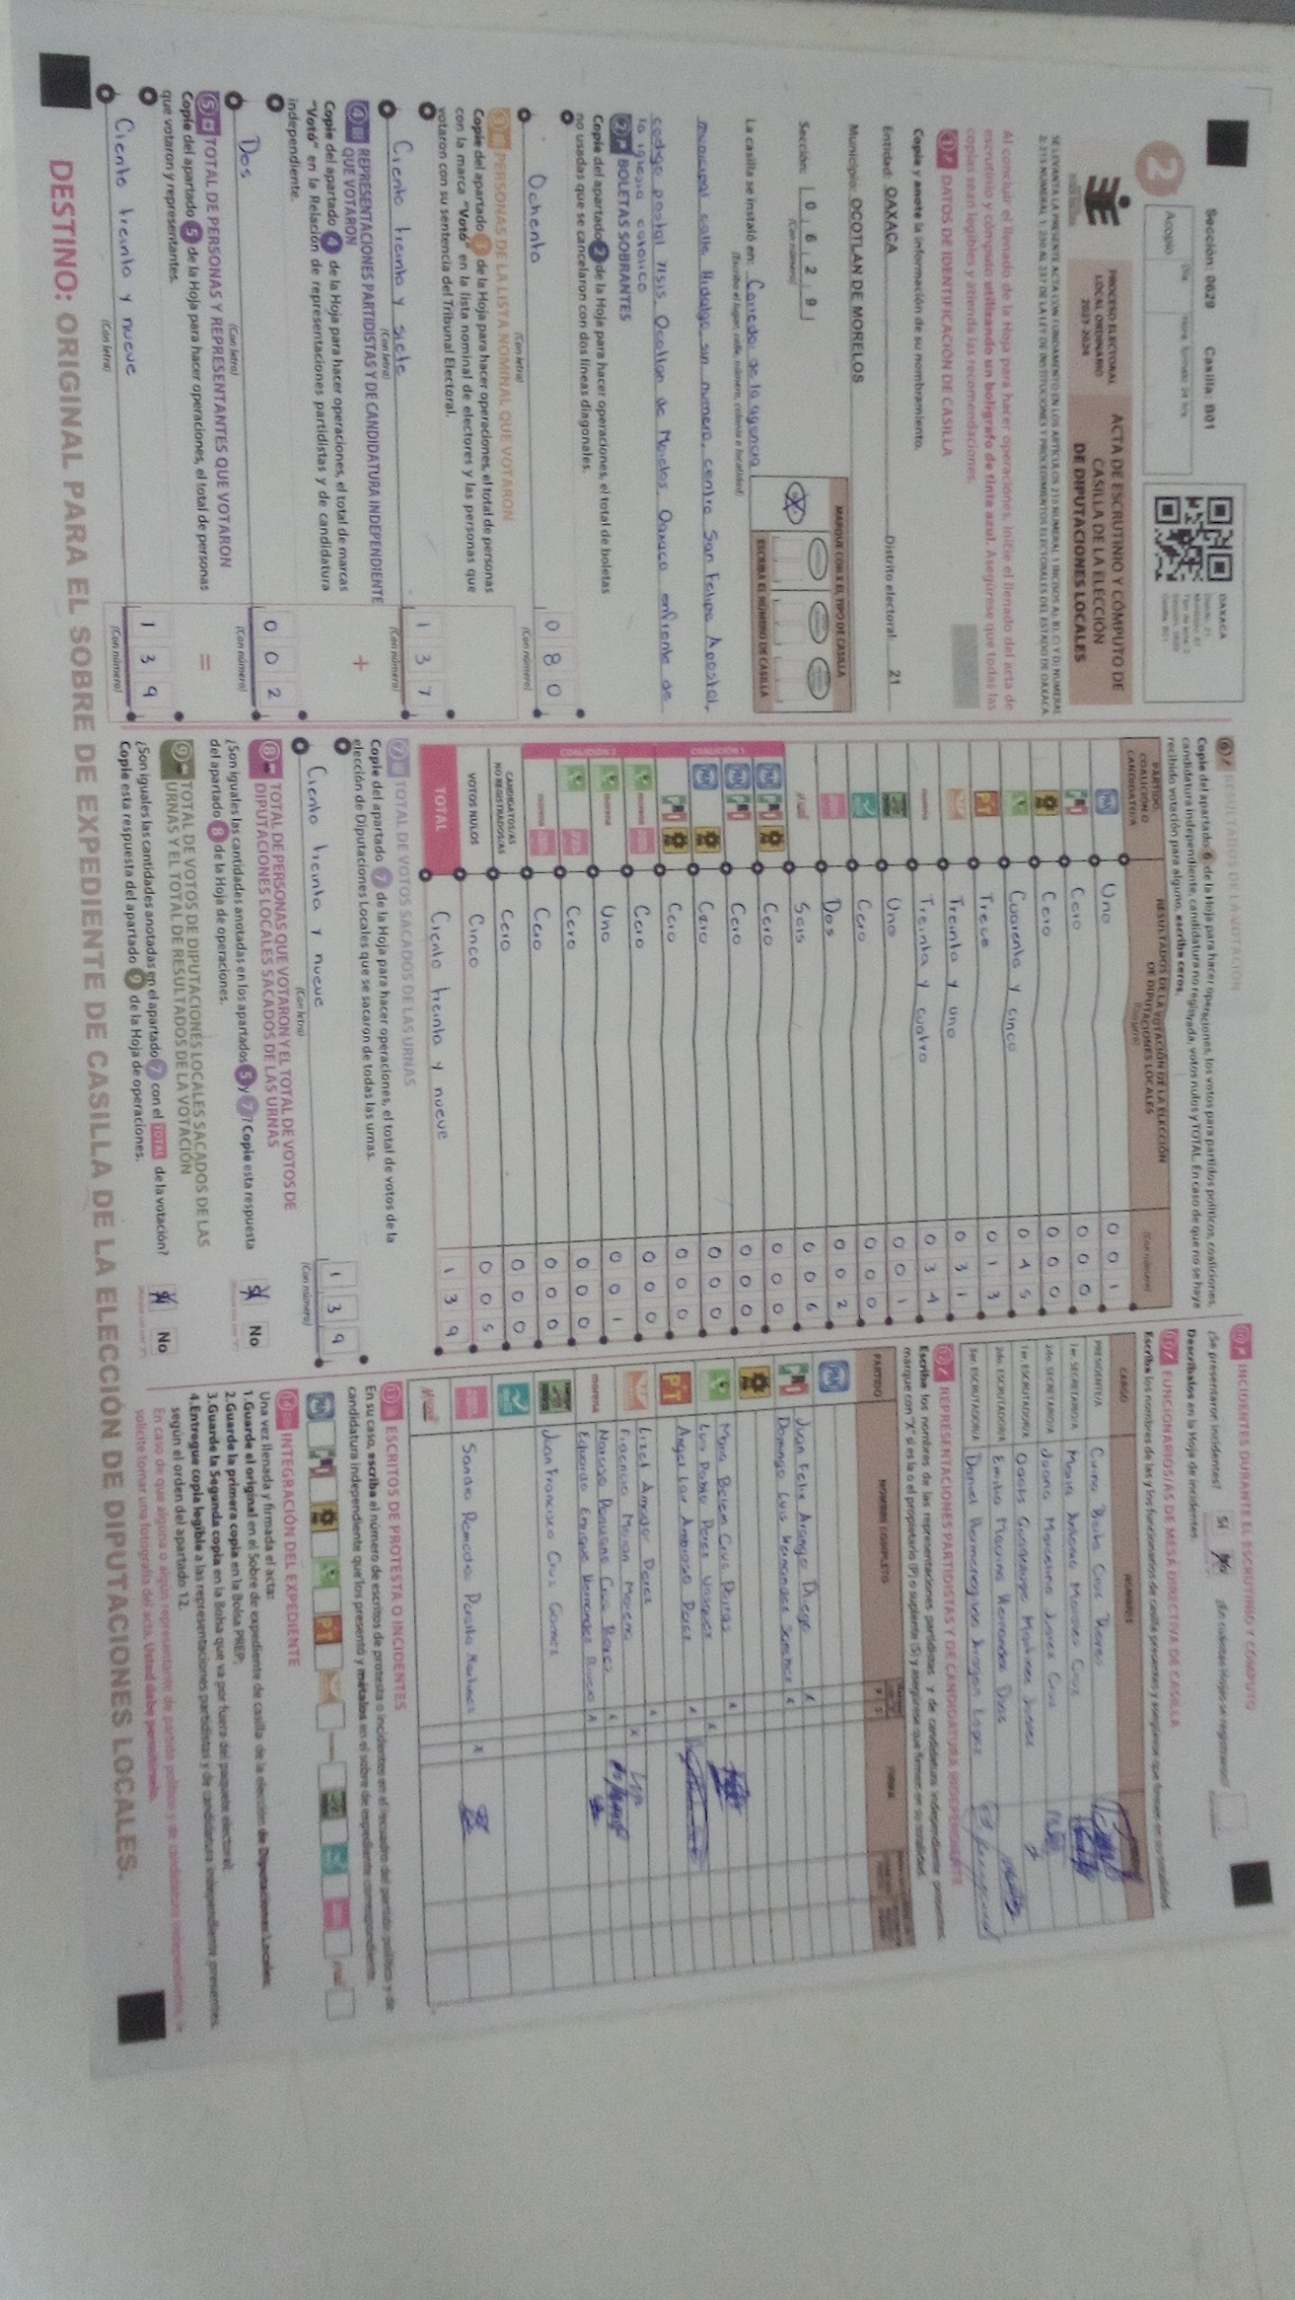 Sección: 0629 Casilla: B01
2
Acopio
PROCESO ELECTORAL
LOCAL ORDINARIO
2023-2024
ACTA DE ESCRUTINIO Y CÓMPUTO DE
CASILLA DE LA ELECCIÓN
DE DIPUTACIONES LOCALES
OAXACA
Al concluir el llenado de la Hoja para hacer operaciones, inicie el llenado del acta de
escrutinio y cómputo utilizando un bolígrafo de tinta azul. Asegúrese que todas las
copias sean legibles y atienda las recomendaciones.
1 DATOS DE IDENTIFICACIÓN DE CASILLA
Copie y anote la información de su nombramiento.
Entidad: OAXACA Distrito electoral: 21
Municipio: OCOTLÁN DE MORELOS
Sección: 0 6 2 9
(Con número)
MARQUE CON X EL TIPO DE CASILLA
ESCRIBA EL NÚMERO DE CASILLA
La casilla se instaló en: Corredor de la agencia
(Escriba el lugar, calle, número, colonia o localidad)
municipal calle Hidalgo, sin numero, centro San Felipe Apostol,
codigo postal 71515 Ocotlan de Morelos Oaxaca enfrente de
la iglesia catolica
2 BOLETAS SOBRANTES
Copie del apartado 2 de la Hoja para hacer operaciones, el total de boletas
no usadas que se cancelaron con dos líneas diagonales.
Ochenta 0 8 0
(Con letra) (Con número)
3 PERSONAS DE LA LISTA NOMINAL QUE VOTARON
Copie del apartado 3 de la Hoja para hacer operaciones, el total de personas
con la marca "Votó" en la lista nominal de electores y las personas que
votaron con su sentencia del Tribunal Electoral.
Ciento treinta y siete 1 3 7
(Con letra) (Con número)
4 REPRESENTACIONES PARTIDISTAS Y DE CANDIDATURA INDEPENDIENTE
QUE VOTARON
+
Copie del apartado 4 de la Hoja para hacer operaciones, el total de marcas
"Votó" en la Relación de representaciones partidistas y de candidatura
independiente.
Dos 0 0 2
(Con letra) (Con número)
5 TOTAL DE PERSONAS Y REPRESENTANTES QUE VOTARON
=
Copie del apartado 5 de la Hoja para hacer operaciones, el total de personas
que votaron y representantes.
Ciento treinta y nueve 1 3 9
(Con letra) (Con número)
6 RESULTADOS DE LA VOTACIÓN
Copie del apartado 6 de la Hoja para hacer operaciones, los votos para partidos políticos, coaliciones,
candidatura independiente, candidatura no registrada, votos nulos y TOTAL. En caso de que no se haya
recibido votación para alguno, escriba ceros.
PARTIDO
COALICIÓN O
CANDIDATO/A
RESULTADOS DE LA VOTACIÓN DE LA ELECCIÓN
DE DIPUTACIONES LOCALES
(Con letra) (Con número)
PAN Uno 0 0 1
PRI Cero 0 0 0
Cero 0 0 0
Cuarenta y cinco 0 4 5
PT Trece 0 1 3
Treinta y uno 0 3 1
morena Treinta y cuatro 0 3 4
Uno 0 0 1
Cero 0 0 0
Dos 0 0 2
Seis 0 0 6
COALICIÓN 1
PAN PRI Cero 0 0 0
PAN PRI Cero 0 0 0
PAN Cero 0 0 0
PRI Cero 0 0 0
COALICIÓN 2
morena Cero 0 0 0
morena Uno 0 0 1
Cero 0 0 0
morena Cero 0 0 0
CANDIDATOS/AS
NO REGISTRADOS/AS Cero 0 0 0
VOTOS NULOS Cinco 0 0 5
TOTAL Ciento treinta y nueve 1 3 9
7 TOTAL DE VOTOS SACADOS DE LAS URNAS
Copie del apartado 7 de la Hoja para hacer operaciones, el total de votos de la
elección de Diputaciones Locales que se sacaron de todas las urnas.
Ciento treinta y nueve 1 3 9
(Con letra) (Con número)
8 TOTAL DE PERSONAS QUE VOTARON Y EL TOTAL DE VOTOS DE
DIPUTACIONES LOCALES SACADOS DE LAS URNAS
¿Son iguales las cantidades anotadas en los apartados 5 y 7? Copie esta respuesta
del apartado 8 de la Hoja de operaciones.
Sí No
9 TOTAL DE VOTOS DE DIPUTACIONES LOCALES SACADOS DE LAS
URNAS Y EL TOTAL DE RESULTADOS DE LA VOTACIÓN
¿Son iguales las cantidades anotadas en el apartado 7 con el TOTAL de la votación?
Copie esta respuesta del apartado 9 de la Hoja de operaciones.
Sí No
10 INCIDENTES DURANTE EL ESCRUTINIO Y CÓMPUTO
¿Se presentaron incidentes? Sí No
Descríbalos en la Hoja de incidentes.
11 FUNCIONARIOS/AS DE MESA DIRECTIVA DE CASILLA
Escriba los nombres de las y los funcionarios de casilla presentes y asegúrese que firmen en su totalidad
CARGO NOMBRES
PRESIDENTE/A
1er. SECRETARIO/A
2do. SECRETARIO/A
1er. ESCRUTADOR/A
2do. ESCRUTADOR/A
3er. ESCRUTADOR/A
12 REPRESENTACIONES PARTIDISTAS Y DE CANDIDATURA INDEPENDIENTE
Escriba los nombres de las representaciones partidistas y de candidatura independiente presentes,
marque con "X" si es la o el propietario (P) o suplente (S) y asegúrese que firmen en su totalidad.
PARTIDO NOMBRE COMPLETO FIRMA
Juan Felix Arango Diego
Domingo Luis Hernandez
Luis Pablo Perez Vasquez
Lizet Amador Perez
Juan Francisco Cruz Gomez
13 ESCRITOS DE PROTESTA O INCIDENTES
En su caso, escriba el número de escritos de protesta o incidentes en el recuadro del partido político y de
candidatura independiente que los presentó y métalos en el sobre de expediente correspondiente.
14 INTEGRACIÓN DEL EXPEDIENTE
Una vez llenada y firmada el acta:
1.Guarde el original en el Sobre de expediente de casilla de la elección de Diputaciones Locales.
2.Guarde la primera copia en la Bolsa PREP.
3.Guarde la Segunda copia en la Bolsa que va por fuera del paquete electoral.
4.Entregue copia legible a las representaciones partidistas y de candidatura independiente presentes,
según el orden del apartado 12.
En caso de que alguna o algún representante de partido político y de candidatura independiente, le
solicite tomar una fotografía del acta, Usted debe permitírselo.
DESTINO: ORIGINAL PARA EL SOBRE DE EXPEDIENTE DE CASILLA DE LA ELECCIÓN DE DIPUTACIONES LOCALES.